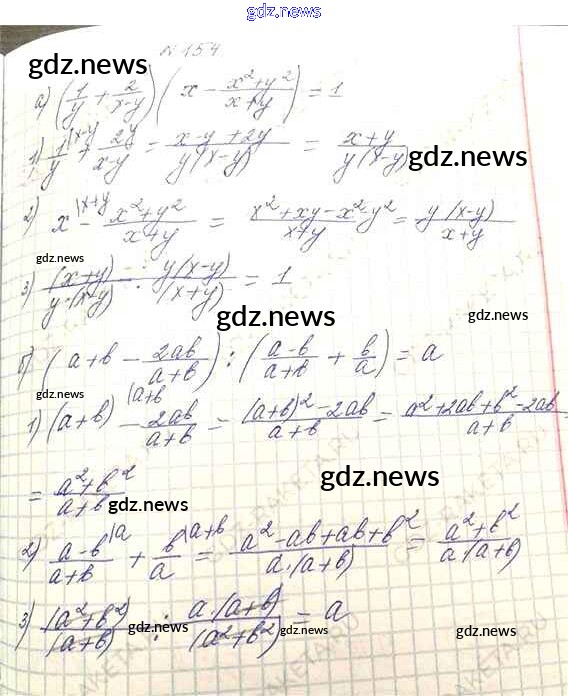 gdz.news
N 154
gdz.news
а) (1/y + 2/(x-y)) (x - (x²+y²)/(x+y)) = 1
1) 1/y |x-y + 2y/(x-y) = (x-y+2y)/(y(x-y)) = (x+y)/(y(x-y)) gdz.news
2) x |x+y - (x²+y²)/(x+y) = (x²+xy-x²-y²)/(x+y) = y(x-y)/(x+y)
gdz.news
3) (x+y)/(y·(x+y)) : y(x-y)/(x+y) = 1
gdz.news
б) (a+b - 2ab/(a+b)) : ((a-b)/(a+b) + b/a) = a
gdz.news
1) (a+b) |a+b - 2ab/(a+b) = ((a+b)²-2ab)/(a+b) = (a²+2ab+b²-2ab)/(a+b) =
= (a²+b²)/(a+b) gdz.news gdz.news
2) (a-b)/(a+b) |a + b/a |a+b = (a²-ab+ab+b²)/(a·(a+b)) = (a²+b²)/(a(a+b))
3) (a²+b²)/(a+b) : a·(a+b)/(a²+b²) = a
gdz.news gdz.news gdz.news